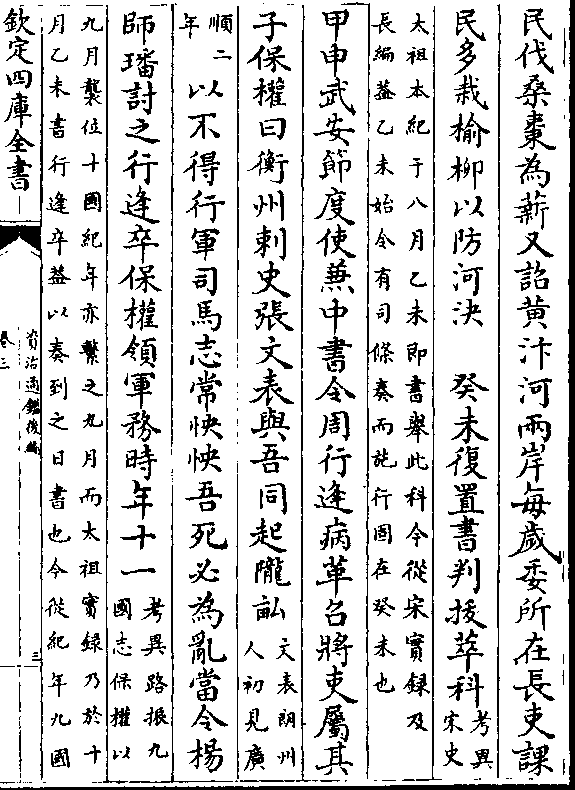 民伐桑棗為薪又詔黄汴河兩岸每歲委所在長吏課
民多栽榆柳以防河決　癸未復置書判拔萃科考異
宋史
太祖本紀于八月乙未即書舉此科今從宋實録及
長編葢乙未始令有司條奏而施行固在癸未也
甲申武安節度使兼中書令周行逢病革召將吏屬其
子保權曰衡州刺史張文表與吾同起隴畝文表朗州
人初見廣
順二
年
以不得行軍司馬志常怏怏吾死必為亂當令楊
師璠討之行逢卒保權領軍務時年十一考異路振九
國志保權以
九月襲位十國紀年亦繫之九月而太祖實録乃於十
月乙未書行逢卒葢以奏到之日書也今從紀年九國
欽定四庫全書
資治通鑑後編
卷三
三